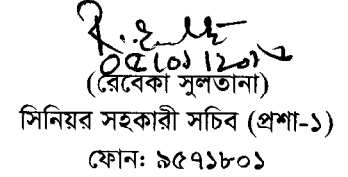 ০৫।০১।২০১৬
(রেবেকা সুলতানা)
সিনিয়র সহকারী সচিব (প্রশা-১)
ফোন: ৯৫৭১৮০১